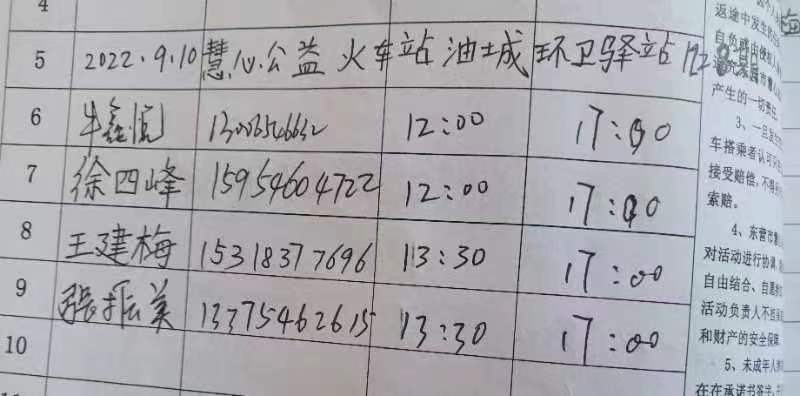 4
5 2022.9.10 慧心公益 火车站 油城 环卫驿站
6 牛鑫悦 12:00 17:00
7 徐四峰 15954604722 12:00 17:00
8 王建梅 15318377696 13:30 17:00
9 张振美 13375462615 13:30 17:00
10
返途中发生的
自负或由侵权人
产生的一切责任
3、一旦发生
车搭乘者认可
接受赔偿，不得
索赔。
4、东营市
对活动进行协调
自由结合、自愿
活动负责人不担
和财产的安全保障
5、未成年人
在在承诺书签字